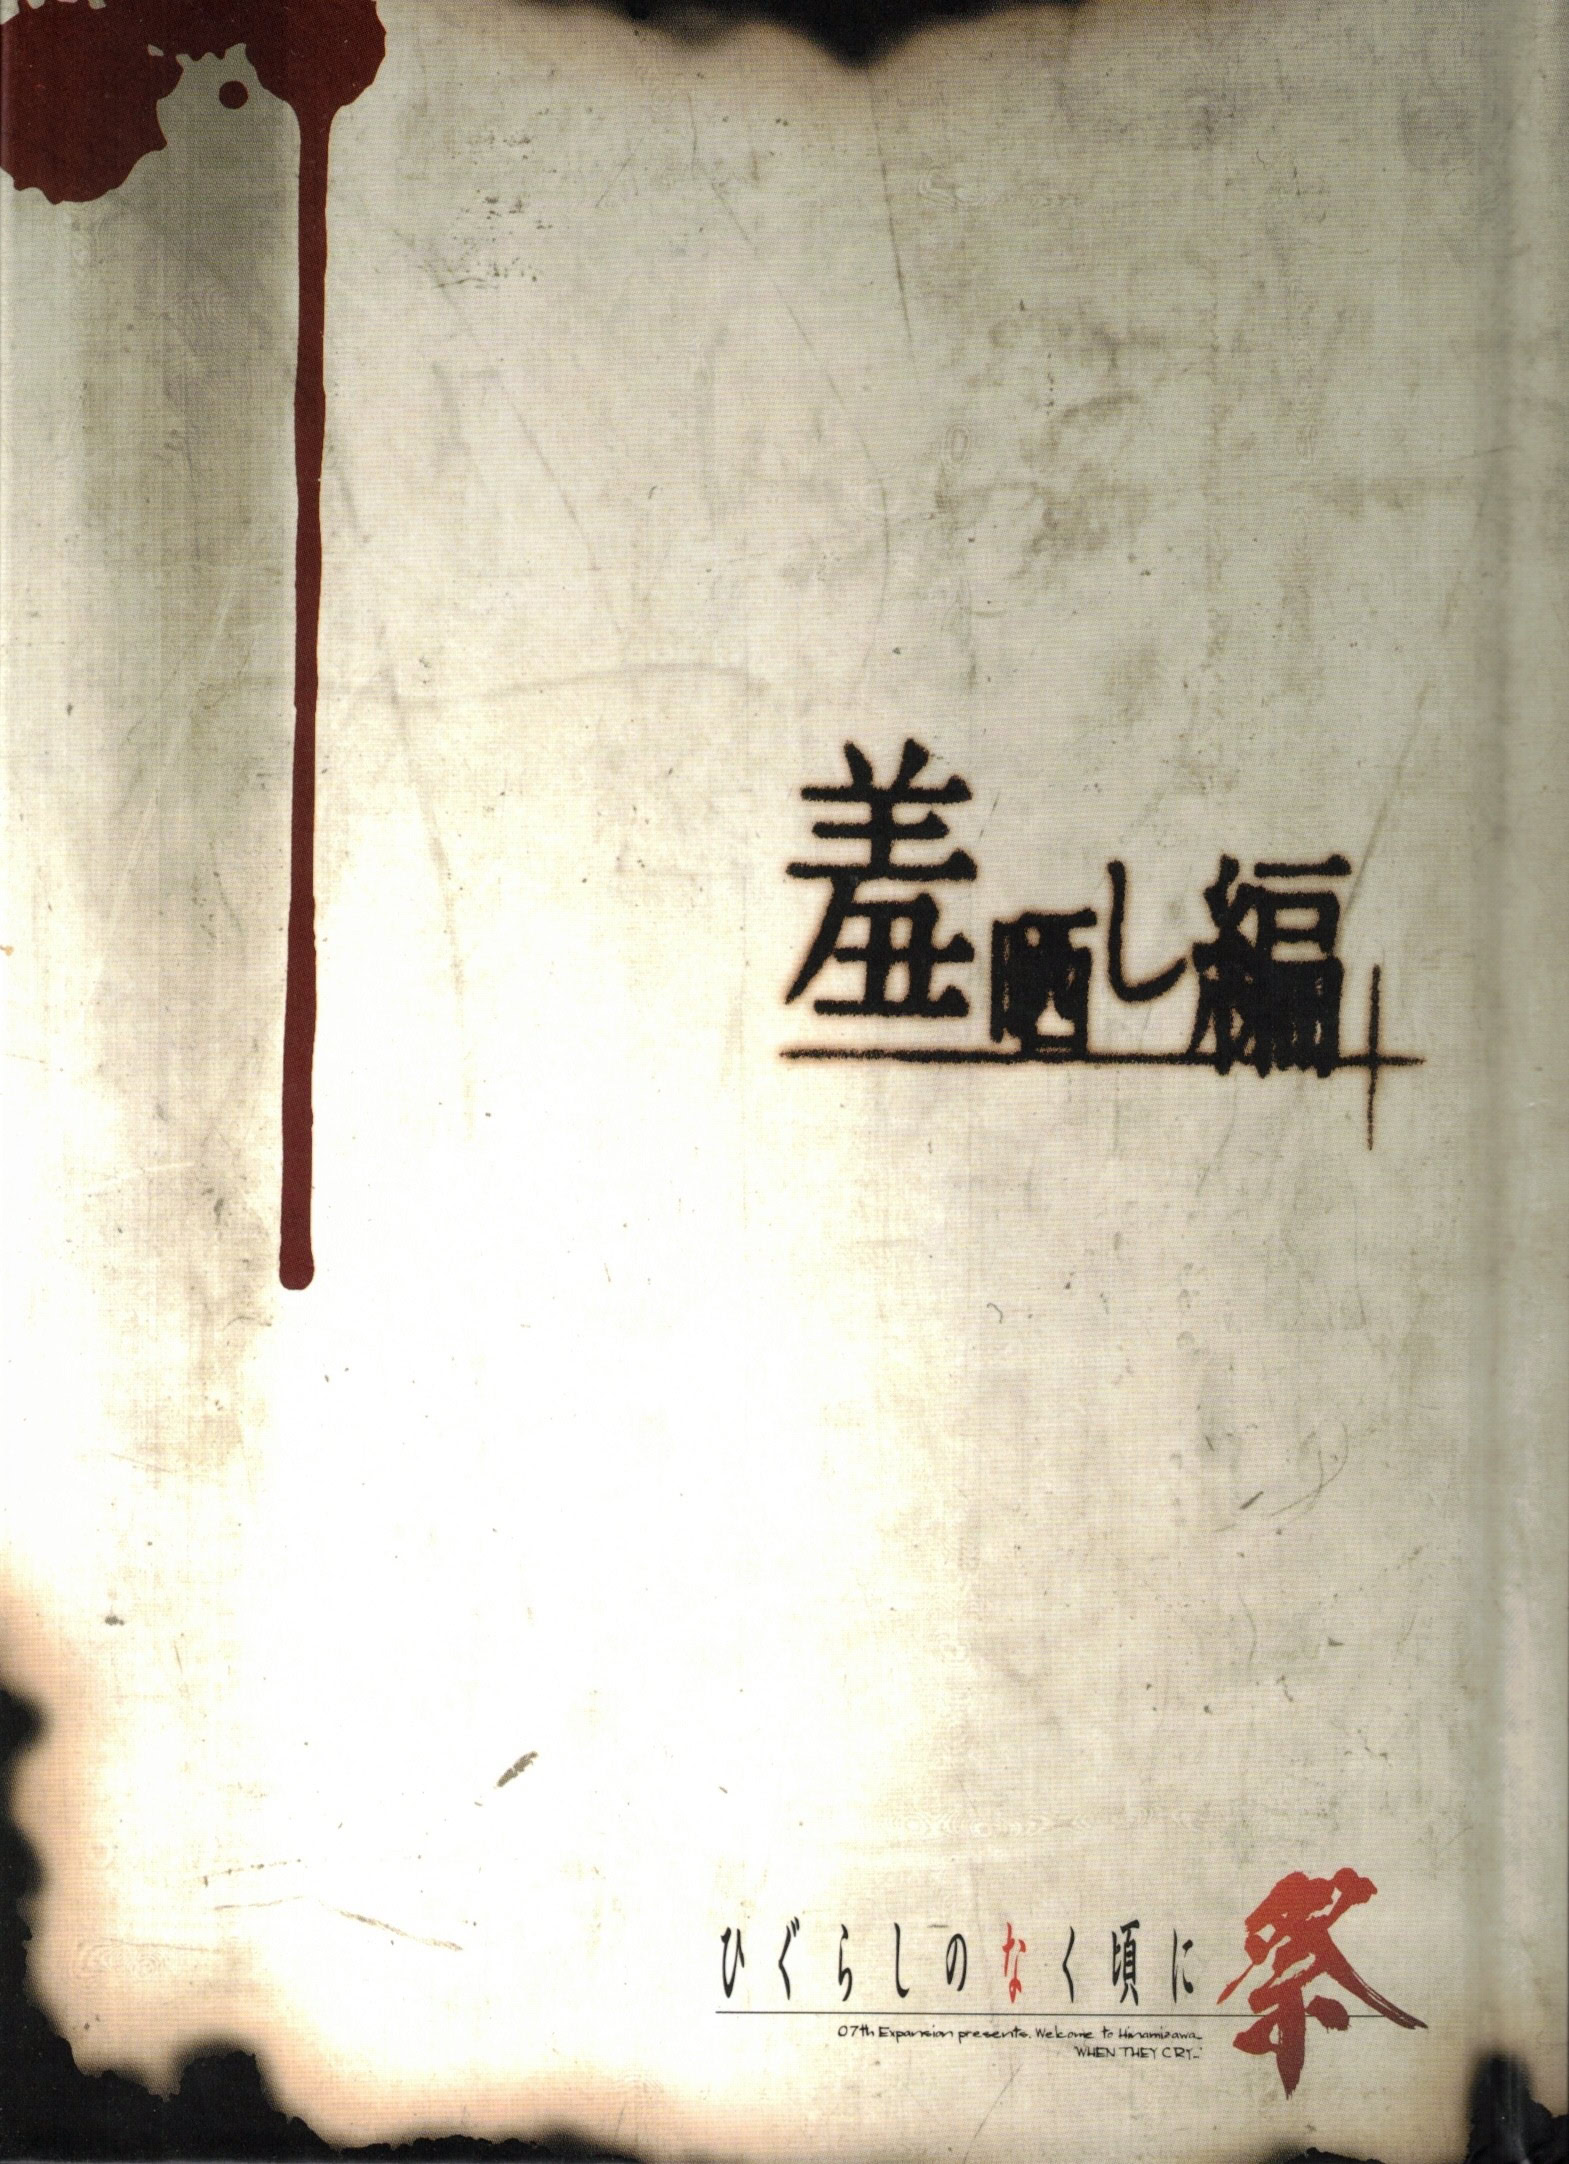 羞晒し編
ひぐらしのなく頃に祭
07th Expansion presents. Welcome to Hinamizawa...
WHEN THEY CRY...